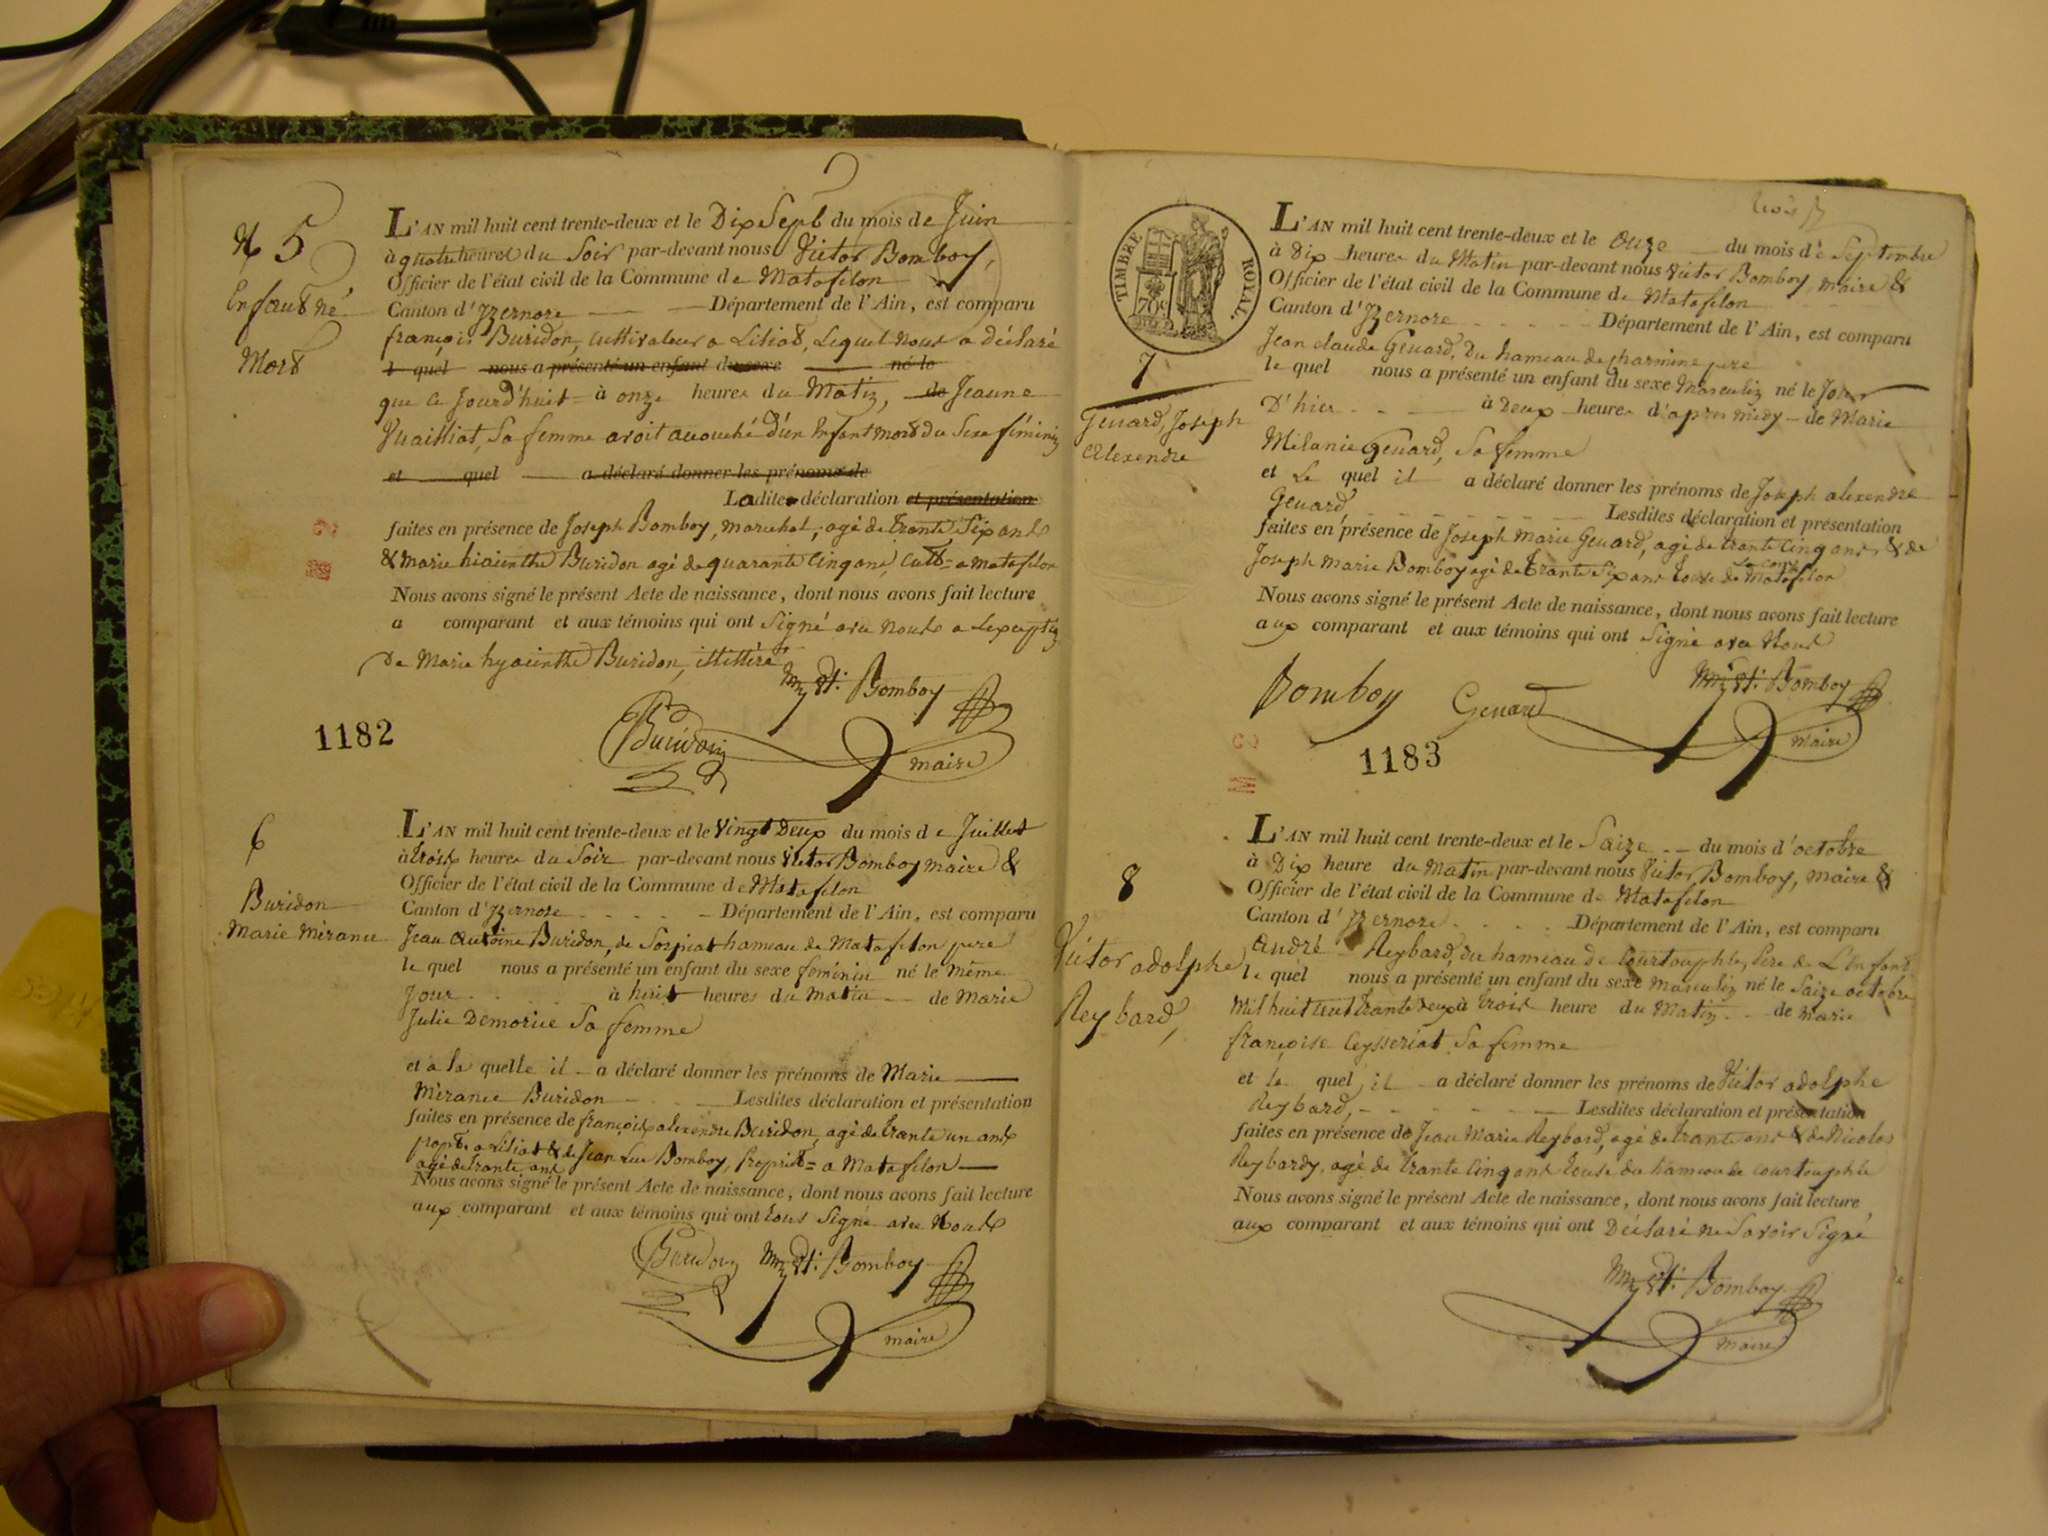 N° 5
Enfant né
Mort
L'AN mil huit cent trente-deux et le Dix Sept du mois de Juin
à quatre heures du Soir par-devant nous Victor Bomboy,
Officier de l'état civil de la Commune de Matafelon
Canton d'Izernore Département de l'Ain, est comparu
françois Buridon, cultivateur a Liliat, Lequel nous a déclaré
l quel nous a présenté un enfant du sexe né le
que ce Jourd'huit à onze heures du Matin, de Jeanne
Vuailliat, Sa femme avoit accouché d'un Enfant mort du Sexe féminin
et quel a déclaré donner les prénoms de
Ladite déclaration et présentation
faites en présence de Joseph Bomboy, marechal, agé de trante Six ans
& marie hiainthe Buridon agé de quarante Cinq ans, cult= a matafelon
Nous avons signé le présent Acte de naissance, dont nous avons fait lecture
a comparant et aux témoins qui ont Signé avec Nous a Lexceptin
De Marie hyacinthe Buridon, illittéré
Bomboy
Buridon
maire
1182
6
Buridon
Marie Mirance
L'AN mil huit cent trente-deux et le vingt Deux du mois de Juillet
à trois heures du Soir par-devant nous Victor Bomboy maire &
Officier de l'état civil de la Commune de Matafelon
Canton d'Izernore Département de l'Ain, est comparu
Jean Antoine Buridon, de Sorpiat hameau de Matafelon pere
le quel nous a présenté un enfant du sexe feminin né le Même
Jour à huit heures du Matin de Marie
Julie Demorice Sa femme
et a la quelle il a déclaré donner les prénoms de Marie
Mirance Buridon Lesdites déclaration et présentation
faites en présence de françois alexendre Buridon, agé de trante un ans
popt. a Liliat & de Jean Luc Bomboy, Propriét= a Matafelon
agé de trante ans
Nous avons signé le présent Acte de naissance, dont nous avons fait lecture
aux comparant et aux témoins qui ont tous Signé avec Nous
Buridon Bomboy
maire
TIMBRE ROYAL.
70c
7
Genard, Joseph
Alexendre
L'AN mil huit cent trente-deux et le Onze du mois de Septembre
à Dix heures du Matin par-devant nous Victor Bomboy, maire &
Officier de l'état civil de la Commune de Matafelon
Canton d'Izernore Département de l'Ain, est comparu
Jean claude Genard, Du hameau de charmine pere
le quel nous a présenté un enfant du sexe Masculin né le Jour
D'hier à Deux heures d'après Midy de Marie
Mélanie Genard, Sa femme
et Le quel il a déclaré donner les prénoms de Joseph alexendre
Genard, Lesdites déclaration et présentation
faites en présence de Joseph Marie Genard, agé de trante Cinq ans, & de
Joseph Marie Bomboy agé de trante Six ans tous de Matafelon
Nous avons signé le présent Acte de naissance, dont nous avons fait lecture
aux comparant et aux témoins qui ont Signé avec Nous
Bomboy Genard Bomboy
maire
1183
8
Victor adolphe
Reybard,
L'AN mil huit cent trente-deux et le Saize du mois d'octobre
à Dix heure du Matin par-devant nous Victor Bomboy, Maire &
Officier de l'état civil de la Commune de Matafelon
Canton d'Izernore Département de l'Ain, est comparu
André Reybard, du hameau de Courtouphle, Pere de L'Enfant
le quel nous a présenté un enfant du sexe masculin né le Saize octobre
Mil huit cent trante deux à trois heure du Matin de Marie
françoise Ceysseriat Sa femme
et le quel, il a déclaré donner les prénoms de Victor adolphe
Reybard, Lesdites déclaration et présentation
faites en présence de Jean Marie Reybard, agé de trante ans & de Nicolas
Reybard, agé de trante Cinq ans tous du hameau de courtouphle
Nous avons signé le présent Acte de naissance, dont nous avons fait lecture
aux comparant et aux témoins qui ont Déclaré ne Savoir Signé
Bomboy
maire